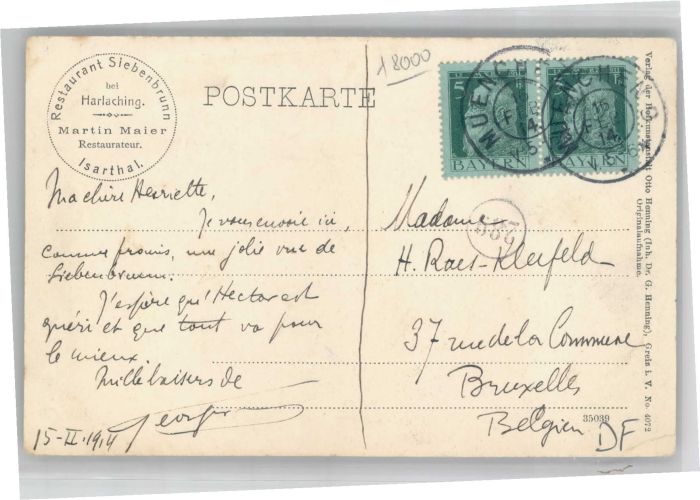 Restaurant Siebenbrunn
bei
Harlaching.
Martin Maier
Restaurateur.
Isarthal.
POSTKARTE
18000
MUENCHEN
BAYERN
BAYERN
5
Ma chère Henriette,
Je vous envoie ici,
comme promis, une jolie vue de
Siebenbrunn.
J'espère qu'Hector est
guéri et que tout va pour
le mieux.
Mille baisers de
15-II-1914
Madame
H. Raes-Kleefeld
37 rue de la Commune
Bruxelles
Belgien
35039
DF
Verlag der Hofkunstanstalt Otto Henning (Inh. Dr. G. Henning), Greiz i. V. No. 4072
Originalaufnahme.